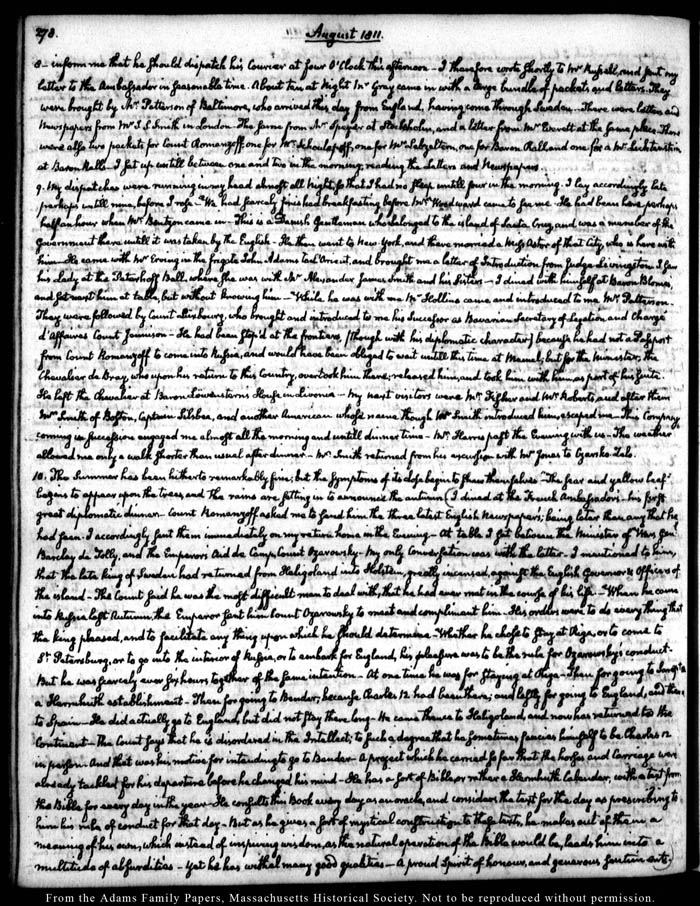 278. August 1811.
8_ inform me that he should dispatch his Courier at four O'Clock this afternoon_ I therefore wrote shortly to Mr Russell, and sent my
letter to the Ambassador in seasonable time. About ten at Night Mr Gray came in with a large bundle of packets and letters. They
were brought by Mr Paterson of Baltimore, who arrived this day from England, having come through Sweden_ There were letters and
Newspapers from Mr J. S. Smith in London_ The same from Mr Speyer at Stockholm, and a letter from Mr Everett at the same place. There
were also two packets for Count Romanzoff, one for Mr one for Mr Labzeltern, one for Baron Rall and one for a Mr
at Baron Ralls_ I sat up untill between one and two in the morning, reading the Letters and Newspapers.
9. My dispatches were running in my head almost all Night, so that I had no sleep untill four in the morning. I lay accordingly late
perhaps untill nine, before I rose_ We had scarcely finished breakfasting before Mr Woodward came to see me_ He had been here perhaps
half an hour when Mr Bentzon came in_ This is a Danish Gentleman who belonged to the island of Santa Cruz, and was a member of the
Government there untill it was taken by the English_ He then went to New York, and there married a Miss Astor of that City, who is here with
him_ He came with Mr Erving in the frigate John Adams to L'Orient, and brought me a letter of Introduction from Judge Livingston. I saw
his Lady at the Peterhoff Ball, where she was with Mr Alexander James Smith and his Sisters_ I dined with himself at Baron Blome's,
and sat next him at table, but without knowing him_ While he was with me Mr Hollins came and introduced to me Mr Patterson_
They were followed by Count who brought and introduced to me his Successor as Bavarian Secretary of Legation and Chargé
d'Affaires Count Jennison_ He had been stop'd at the frontiers, [though with his diplomatic character] because he had not a Passport
from Count Romanzoff to come into Russia, and would have been obliged to wait untill this time at Memel; but for the Minister, the
Chevalier de Bray, who upon his return to this Country, overtook him there; released him, and took him with him as part of his suite.
He left the Chevalier at Baron Lowenstern's House in Livonia_ My next visitors were Mr Fisher and Mr Roberts, and after them
Mr Smith of Boston, Captain Silsbee, and another American whose name though Mr Smith introduced him, escaped me_ This Company,
coming in succession engaged me almost all the morning and untill dinner time_ Mr Harris past the Evening with us_ The weather
allowed me only a walk shorter than usual after dinner_ Mr Smith returned from his excursion with Mr Jones to Czarsko-Zelo.
10. The Summer has been hitherto remarkably fine; but the symptoms of its close begin to shew themselves_ "The sear and yellow leaf"
begins to appear upon the trees, and the rains are setting in to announce the autumn. I dined at the French Ambassador's_ his first
great diplomatic dinner. Count Romanzoff asked me to send him the three latest English Newspapers; being later than any that he
had seen. I accordingly sent them immediately on my return home in the Evening_ At table I sat between the Minister of War, Genl
Barclay de Tolly, and the Emperor's Aid de Camp, Count Ozarovsky_ My only Conversation was with the latter_ I mentioned to him,
that the late king of Sweden had returned from Heligoland into Holstein, greatly incensed against the English Governor & Officers of
the island_ The Count said he was the most difficult man to deal with, that he had ever met in the course of his life_ When he came
into Russia last Autumn, the Emperor sent him Count Ozarovsky to meet and compliment him_ His orders were to do every thing that
the king pleased, and to facilitate any thing upon which he should determine_ Whether he chose to stay at Riga, or to come to
St Petersburg, or to go into the interior of Russia, or to embark for England, his pleasure was to be the rule for Ozarovsky's conduct_
But he was scarcely ever six hours together of the same intention_ At one time he was for staying at Riga_ Then for going to
a Hernhuth establishment_ Then for going to Bender; because Charles 12 had been there; and lastly for going to England, and then
to Spain_ He did actually go to England, but did not stay there long_ He came thence to Heligoland, and now has returned to the
Continent_ The Count says that he is disordered in the Intellect; to such a degree that he sometimes fancies himself to be Charles 12
in person_ And that was his motive for intending to go to Bender_ A project which he carried so far that the horses and Carriage were
already tackled for his departure before he changed his mind_ He has a sort of Bible, or rather a Hernhuth Calendar, with a text from
the Bible for every day in the year_ He consults this Book every day as an oracle, and considers the text for the day as prescribing to
him his rule of conduct for that day_ But as he gives a sort of mystical construction to these texts, he makes out of them a
meaning of his own, which instead of inspiring wisdom, as the natural operation of the Bible would be, leads him into a
multitude of absurdities_ Yet he has withal many good qualities_ A proud Spirit of honour, and generous
From the Adams Family Papers, Massachusetts Historical Society. Not to be reproduced without permission.